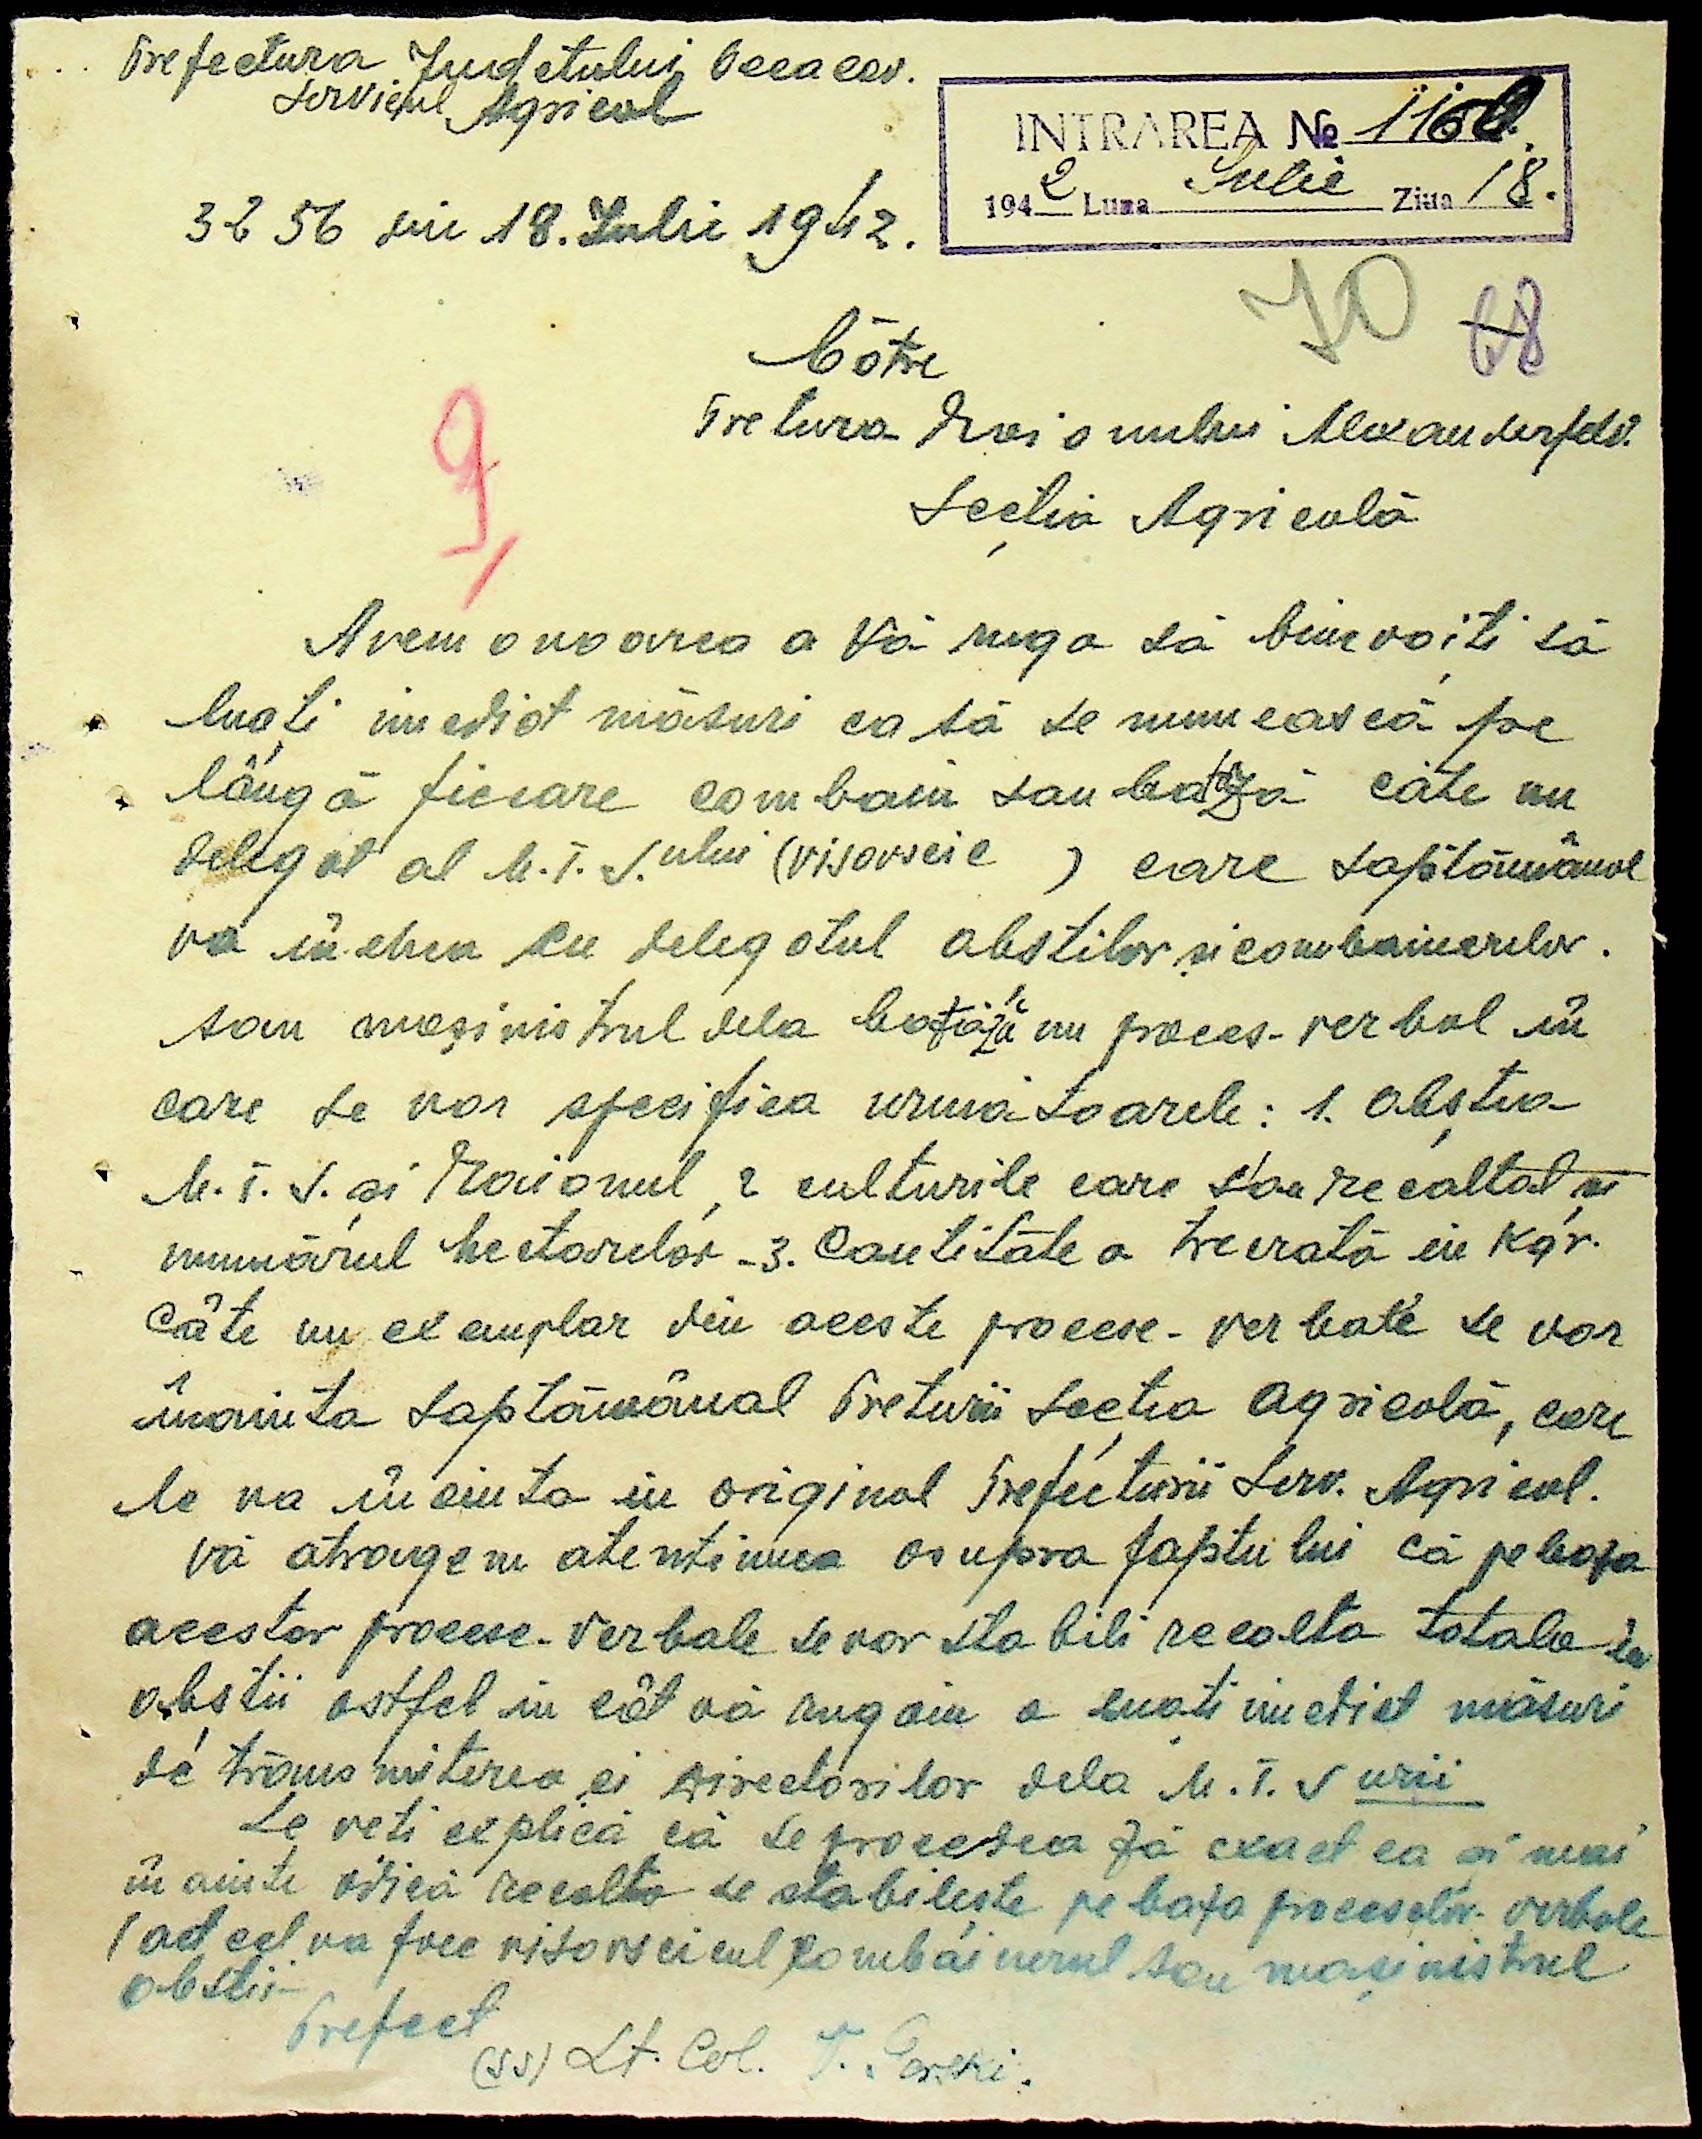 Prefectura Judetului Oceacov.
Serviciul Agricol
INTRAREA № 1160.
1942 Luna Iulie Ziua 18.
3256 din 18. Iulie 1942.
70 68
Cãtre
Pretura Raionului Alexanderfeld.
Secția Agricolã
9,
Avem onoarea a Vã ruga sã binevoiți sã
luați imediat mãsuri ca sã se numeascã pe
lângã fiecare combain sau batozã câte un
delegat al M.T.S.ului (visovscic ) care saptãmânal
va încheia cu delegatul obstilor și combainerilor.
sau mașinistrul dela batozã un proces-verbal în
care se vor specifica urmãtoarele: 1. Obștea
M.T.S. și Raionul, 2 culturile care s'au recoltat și
numãrul hectarelor -3. Cantitatea treeratã in Kgr.
Câte un exemplar din aceste procese-verbale se vor
înainta saptãmânal Preturii Secția Agricolã, care
le va înainta in original Prefecturii Serv. Agricol.
Vã atragem atentiunea asupra faptului cã pe baza
acestor procese-verbale se vor stabili recolta totala
obștii astfel in cât vã rugãm a luați imediat mãsuri
de transmiterea ei Directorilor dela M.T.S urii
Le veti explicã cã se procedeazã exact ca și mai
înainte adicã recolta se stabilește pe baza proceselor-verbale
(act cel va face visovscicul combainerul sau mașinistrul
obstii
Prefect
(ss) Lt. Col. T. Gorski.